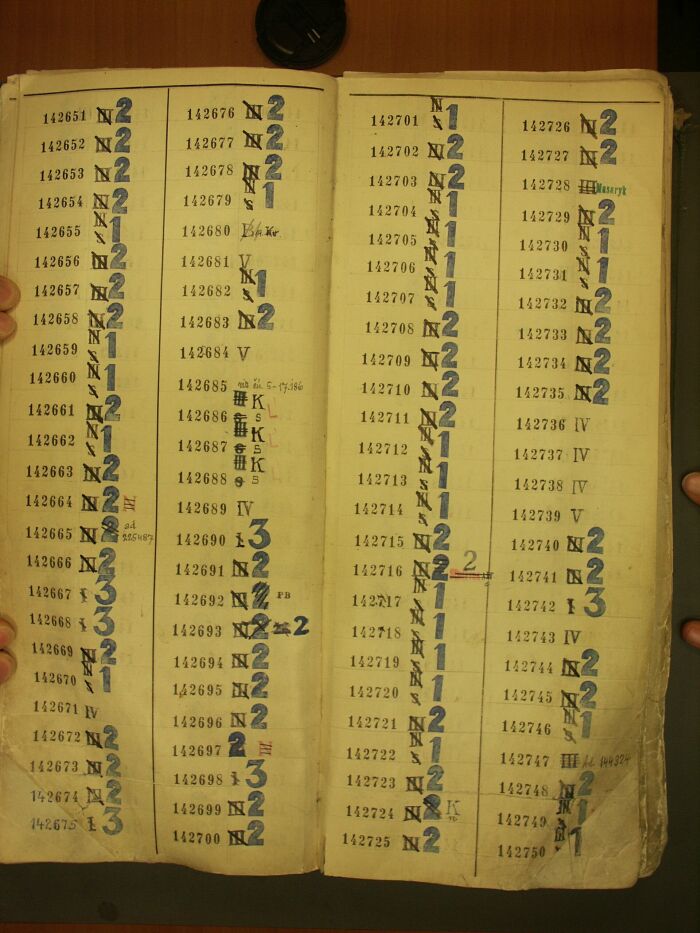 142651 IV 2
142652 IV 2
142653 IV 2
142654 IV 2
142655 IV s 1
142656 IV 2
142657 IV 2
142658 IV 2
142659 IV s 1
142660 IV s 1
142661 IV 2
142662 IV s 1
142663 IV 2
142664 IV 2 III
142665 IV 2 ad 225487
142666 IV 2
142667 I 3
142668 I 3
142669 IV 2
142670 IV s 1
142671 IV
142672 IV 2
142673 IV 2
142674 IV 2
142675 I 3
142676 IV 2
142677 IV 2
142678 IV 2
142679 IV s 1
142680
142681 V
142682 IV s 1
142683 IV 2
142684 V
142685 5-17.186
142686 III K s L
142687 III K s L
142688 III K s L
142689 IV
142690 I 3
142691 IV 2
142692 IV 2 PB
142693 IV 2 2
142694 IV 2
142695 IV 2
142696 IV 2
142697 2 III
142698 I 3
142699 IV 2
142700 IV 2
142701 IV s 1
142702 IV 2
142703 IV 2
142704 IV s 1
142705 IV s 1
142706 IV s 1
142707 IV s 1
142708 IV 2
142709 IV 2
142710 IV 2
142711 IV 2
142712 IV s 1
142713 IV s 1
142714 IV s 1
142715 IV 2
142716 IV 2 2
142717 IV s 1
142718 IV s 1
142719 IV s 1
142720 IV s 1
142721 IV 2
142722 IV s 1
142723 IV 2
142724 IV 2 K
142725 IV 2
142726 IV 2
142727 IV 2
142728 III Masaryk
142729 IV 2
142730 IV s 1
142731 IV s 1
142732 IV 2
142733 IV 2
142734 IV 2
142735 IV 2
142736 IV
142737 IV
142738 IV
142739 V
142740 IV 2
142741 IV 2
142742 I 3
142743 IV
142744 IV 2
142745 IV 2
142746 IV s 1
142747 III ad 144324
142748 IV 2
142749 IV s 1
142750 1